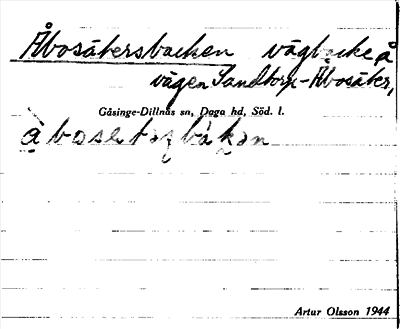 Åbosätersbacken vägbacke å
vägen Sandtorp-Åbosäter,
Gåsinge-Dillnäs sn, Daga hd, Söd. l.
Artur Olsson 1944